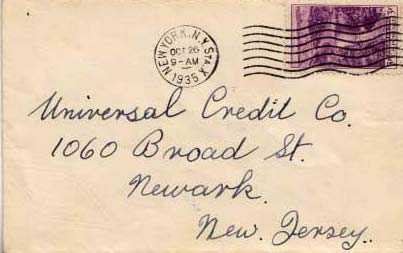 NEW YORK, N.Y. STA. X
OCT 26
9-AM
1935
Universal Credit Co.
1060 Broad St.
Newark.
New. Jersey..